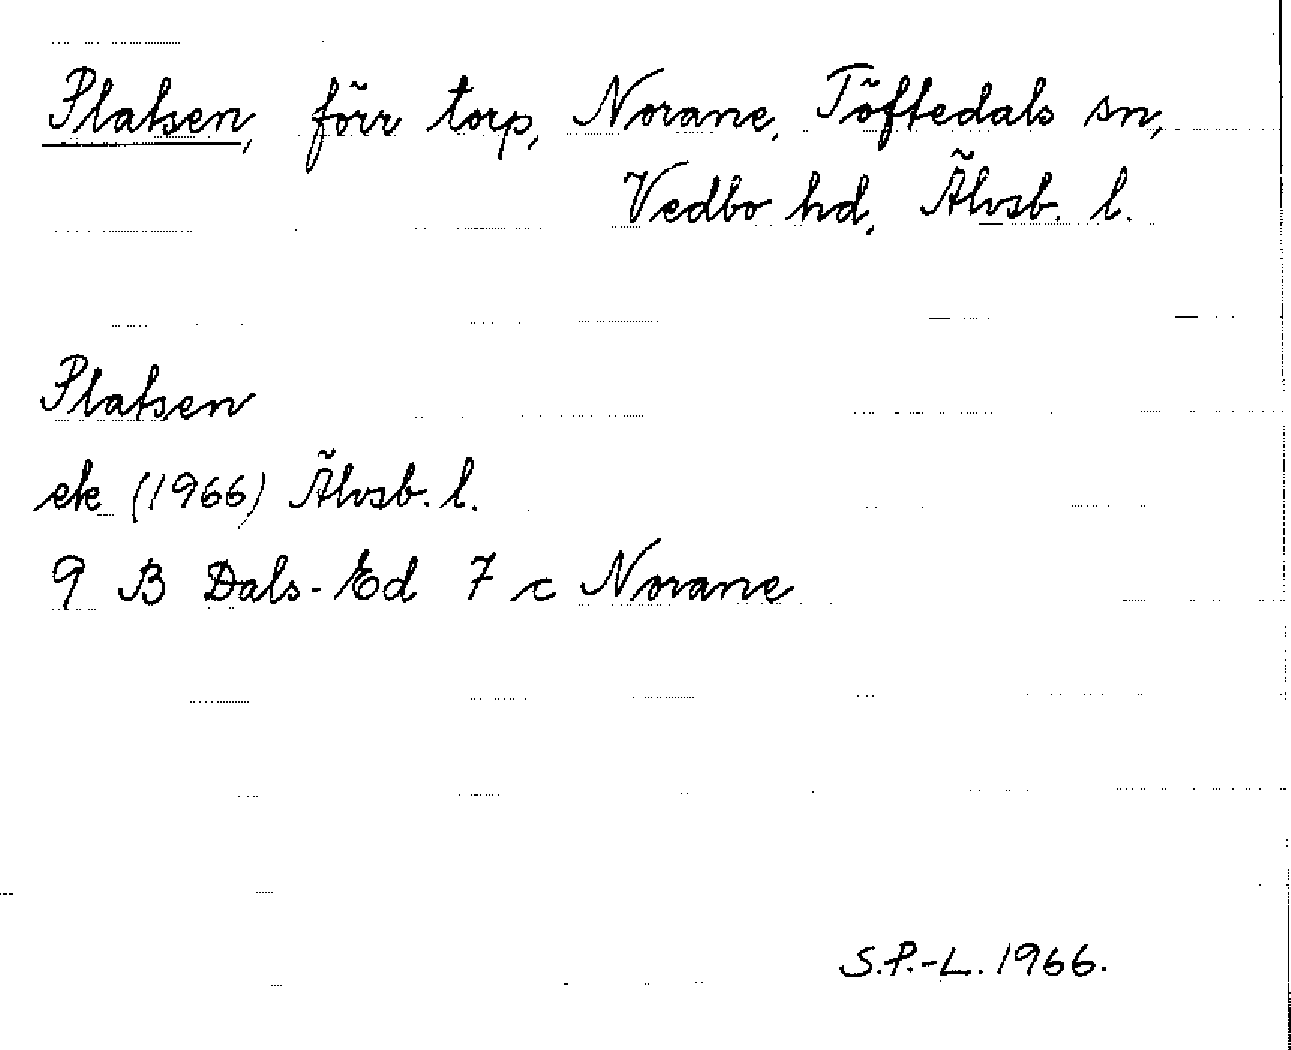 Platsen, förr torp, Norane, Töftedals sn,
Vedbo hd, Älvsb. l.
Platsen
ek (1966) Älvsb. l.
9 B Dals-Ed 7 c Norane
S.P.-L. 1966.